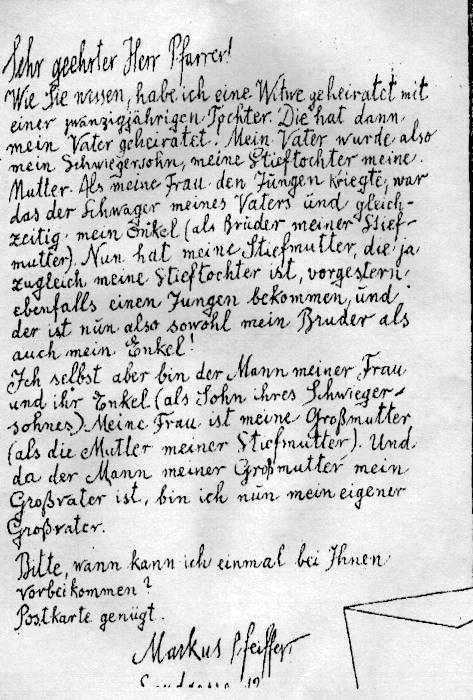 Sehr geehrter Herr Pfarrer!
Wie Sie wissen, habe ich eine Witwe geheiratet mit
einer zwanzigjährigen Tochter. Die hat dann
mein Vater geheiratet. Mein Vater wurde also
mein Schwiegersohn, meine Stieftochter meine
Mutter. Als meine Frau den Jungen kriegte, war
das der Schwager meines Vaters und gleich-
zeitig mein Enkel (als Bruder meiner Stief-
mutter). Nun hat meine Stiefmutter, die ja
zugleich meine Stieftochter ist, vorgestern
ebenfalls einen Jungen bekommen, und
der ist nun also sowohl mein Bruder als
auch mein Enkel!
Ich selbst aber bin der Mann meiner Frau
und ihr Enkel (als Sohn ihres Schwieger-
sohnes). Meine Frau ist meine Großmutter
(als die Mutter meiner Stiefmutter). Und
da der Mann meiner Großmutter mein
Großvater ist, bin ich nun mein eigener
Großvater.
Bitte, wann kann ich einmal bei Ihnen
vorbeikommen?
Postkarte genügt.
Markus Pfeiffer